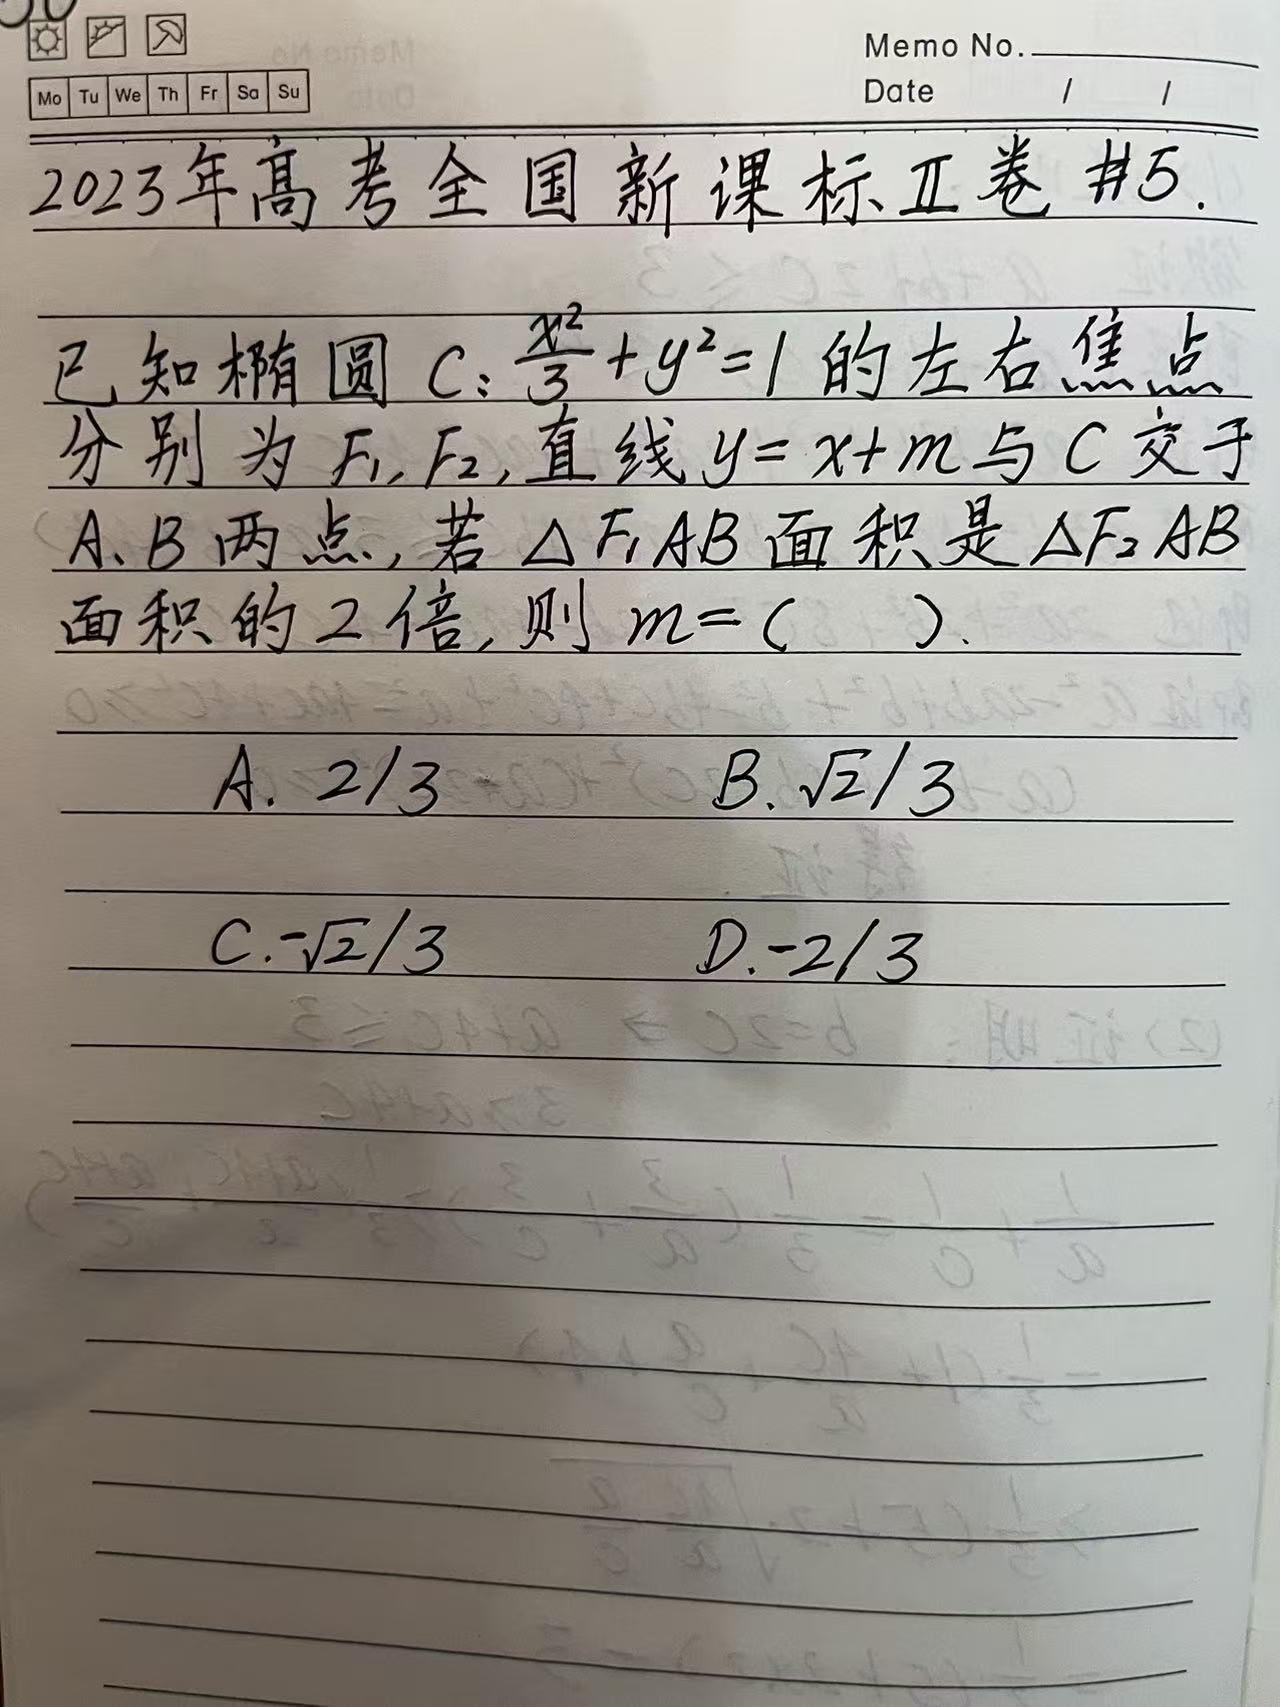 Memo No.
Mo Tu We Th Fr Sa Su
Date / /
2023年高考全国新课标Ⅱ卷 #5.
已知椭圆 C: x²/3 + y² = 1 的左右焦点
分别为 F₁, F₂, 直线 y = x + m 与 C 交于
A、B 两点, 若 △F₁AB 面积是 △F₂AB
面积的 2 倍, 则 m = ( ).
A. 2/3 B. √2/3
C. -√2/3 D. -2/3